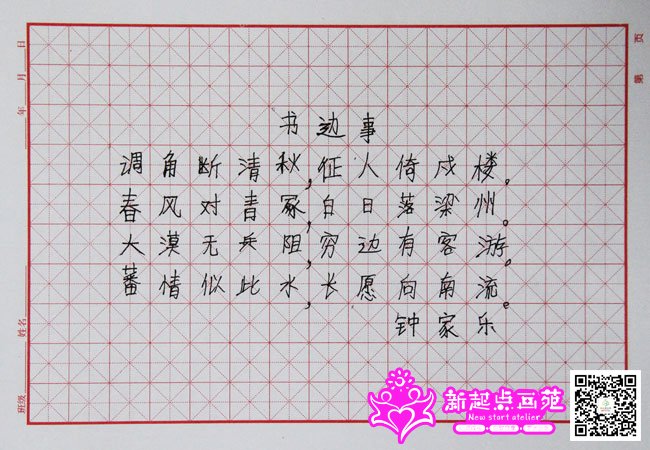 书边事
调角断清秋,征人倚戍楼。
春风对青冢,白日落梁州。
大漠无兵阻,穷边有客游。
蕃情似此水,长愿向南流。
钟家乐
第 页
年 月 日
姓名
班级
新起点画苑
New start atelier